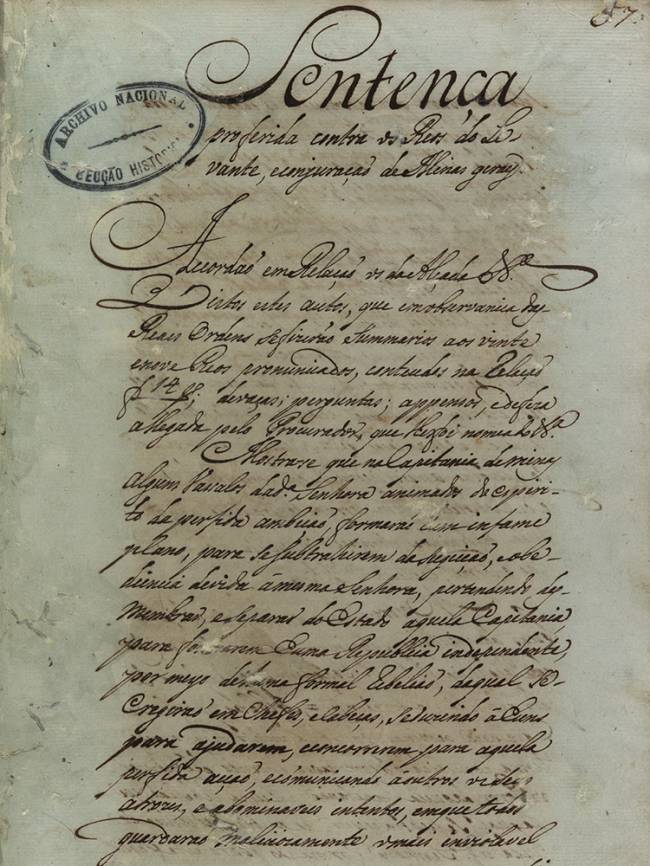 57.
Sentenca
ARCHIVO NACIONAL
SECÇÃO HISTORICA
proferida contra os Reos do Le-
vante, e conjuração de Minas geraes.
Accordaõ em Relaçaõ os da Alçada &.ª
Vistos estes autos, que em observancia das
Reaes Ordens se fizeraõ Summarios aos vinte
e nove Reos pronunciados, conteudos na Relaçaõ
f 14 ; devaças; perguntas; appensos, e defeza
allegada pelo Procurador, que lhe foi nomeado &.ª
Mostrase que na Capitania de minas
alguns Vassalos da d.ª Senhora animados do espiri-
to da perfida ambiçaõ, formaraõ hum infame
plano, para se subtrahirem da sugeiçaõ, e obe-
diencia devida á mesma Senhora, pertendendo des-
membrar, e separar do Estado aquela Capitania
para formarem huma Republica independente,
por meyo de huma formal Rebeliaõ, da qual se
erigiraõ em Chefes, e Cabeças, seduzindo á huns
para ajudarem, e concorrerem para aquela
perfida acçaõ, e communicando á outros os seus
atrozes, e abominaveis intentos, em que todos
guardaraõ maliciosamente o mais inviolavel